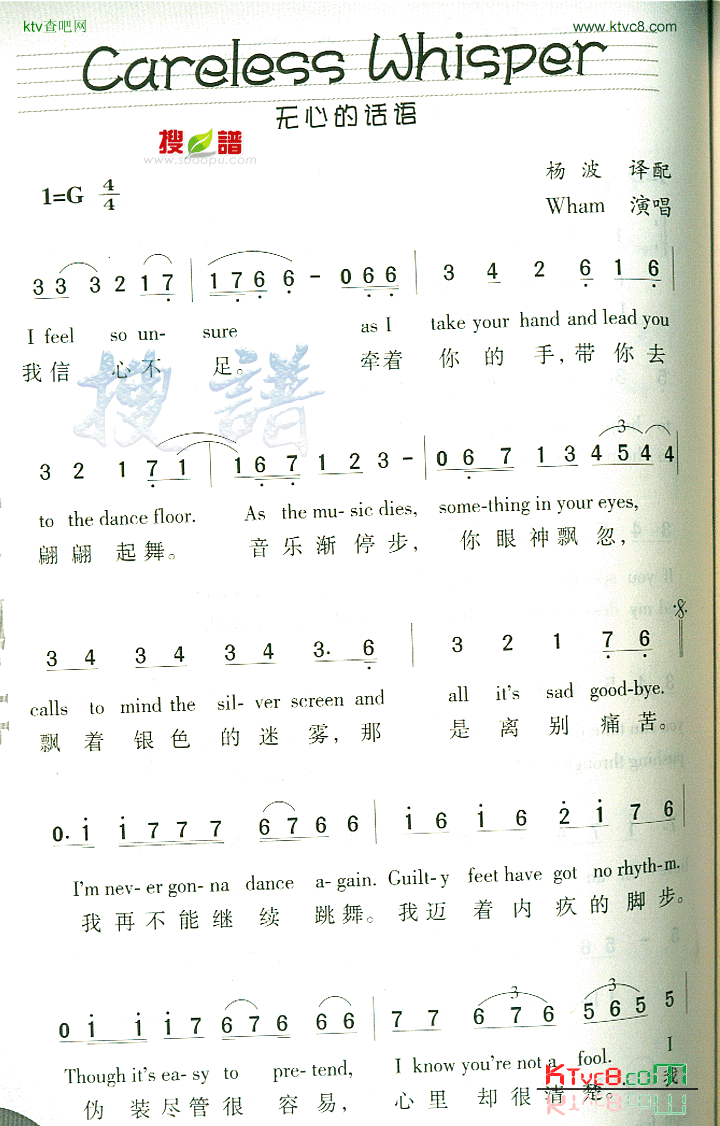 ktv查吧网
www.ktvc8.com
Careless Whisper
无心的话语
搜 譜
www.sooopu.com
1=G 4/4
杨 波 译配
Wham 演唱
3 3 3 2 1 7 | 1 7 6 6 - 0 6 6 | 3 4 2 6 1 6 |
I feel so un- sure as I take your hand and lead you
我信 心不 足。 牵着 你 的 手, 带 你 去
搜 譜
3 2 1 7 1 | 1 6 7 1 2 3 - | 0 6 7 1 3 4 5 4 4 |
to the dance floor. As the mu- sic dies, some-thing in your eyes,
翩 翩 起 舞。 音 乐 渐 停 步, 你 眼 神 飘 忽,
3 4 3 4 3 4 3. 6 | 3 2 1 7 6
calls to mind the sil- ver screen and all it's sad good-bye.
飘 着 银 色 的 迷 雾, 那 是 离 别 痛 苦。
0. 1 1 7 7 7 6 7 6 6 | 1 6 1 6 2 1 7 6 |
I'm nev- er gon- na dance a- gain. Guilt- y feet have got no rhythm.
我 再 不 能 继 续 跳 舞。 我 迈 着 内 疚 的 脚 步。
0 1 1 1 7 6 7 6 6 6 | 7 7 6 7 6 5 6 5 5 |
Though it's ea- sy to pre- tend, I know you're not a fool. I
伪 装 尽 管 很 容 易, 心 里 却 很 清 楚。 我
KTvc8.com